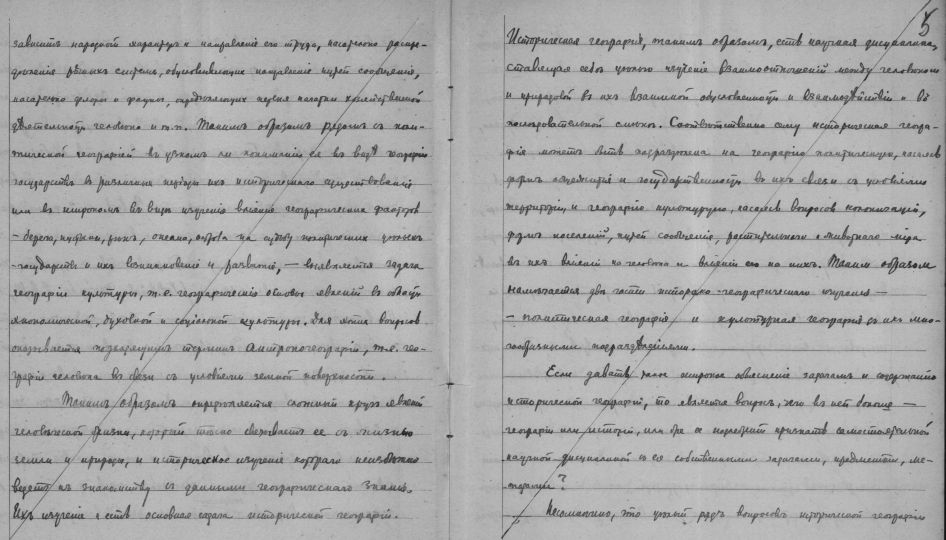 зависитъ народный характеръ и направленіе его труда, насколько распре-
дѣленія рѣчныхъ системъ, обусловливающихъ направленіе путей сообщенія,
насколько флоры и фауны, опредѣляющихъ первыя начатки хозяйственной
дѣятельности человѣка и т.п. Такимъ образомъ рядомъ съ поли-
тической географіей въ узкомъ ли пониманіи ея въ видѣ географіи
государствъ въ различные періоды ихъ историческаго существованія
или въ широкомъ въ видѣ изученія вліянія географическихъ факторовъ
- берега, пустыни, рѣкъ, океана, острова на судьбу политическихъ цѣлыхъ
- государствъ и ихъ возникновеніе и развитіе, — выявляется задача
географіи культуры, т.е. географическія основы явленій въ области
экономической, духовной и соціальной культуры. Для этихъ вопросовъ
оказывается подходящимъ терминъ Антропогеографіи, т.е. гео-
графіи человѣка въ связи съ условіями земной поверхности.
Такимъ образомъ опредѣляется сложный кругъ явленій
человѣческой жизни, который тѣсно связываетъ ее съ жизнью
земли и природы, и историческое изученіе котораго неизбѣжно
ведетъ къ знакомству съ данными географическаго знанія.
Ихъ изученіе и есть основная задача исторической географіи.
5
Историческая географія, такимъ образомъ, есть научная дисциплина,
ставящая себѣ цѣлью изученіе взаимоотношеній между человѣкомъ
и природой въ ихъ взаимной обусловленности и взаимодѣйствіи и въ
послѣдовательной смѣнѣ. Соотвѣтственно сему историческая геогра-
фія можетъ быть подраздѣлена на географію политическую, касаясь
формъ общежитія и государственности въ ихъ связи съ условіями
территоріи, и географію культурную, касаясь вопросовъ колонизаціи,
формъ поселеній, путей сообщенія, растительнаго и животнаго міра
въ ихъ вліяніи на человѣка и вліяніи его на нихъ. Такимъ образомъ
намѣчается двѣ части историко-географическаго изученія —
- политическая географія и культурная географія съ ихъ мно-
гообразными подраздѣленіями.
Если давать такое широкое объясненіе задачамъ и содержанію
исторической географіи, то является вопросъ, чего въ ней больше —
географіи или исторіи, или же ее надлежитъ признать самостоятельной
научной дисциплиной съ ея собственными задачами, предметомъ, ме-
тодами?
Несомнѣнно, что цѣлый рядъ вопросовъ исторической географіи